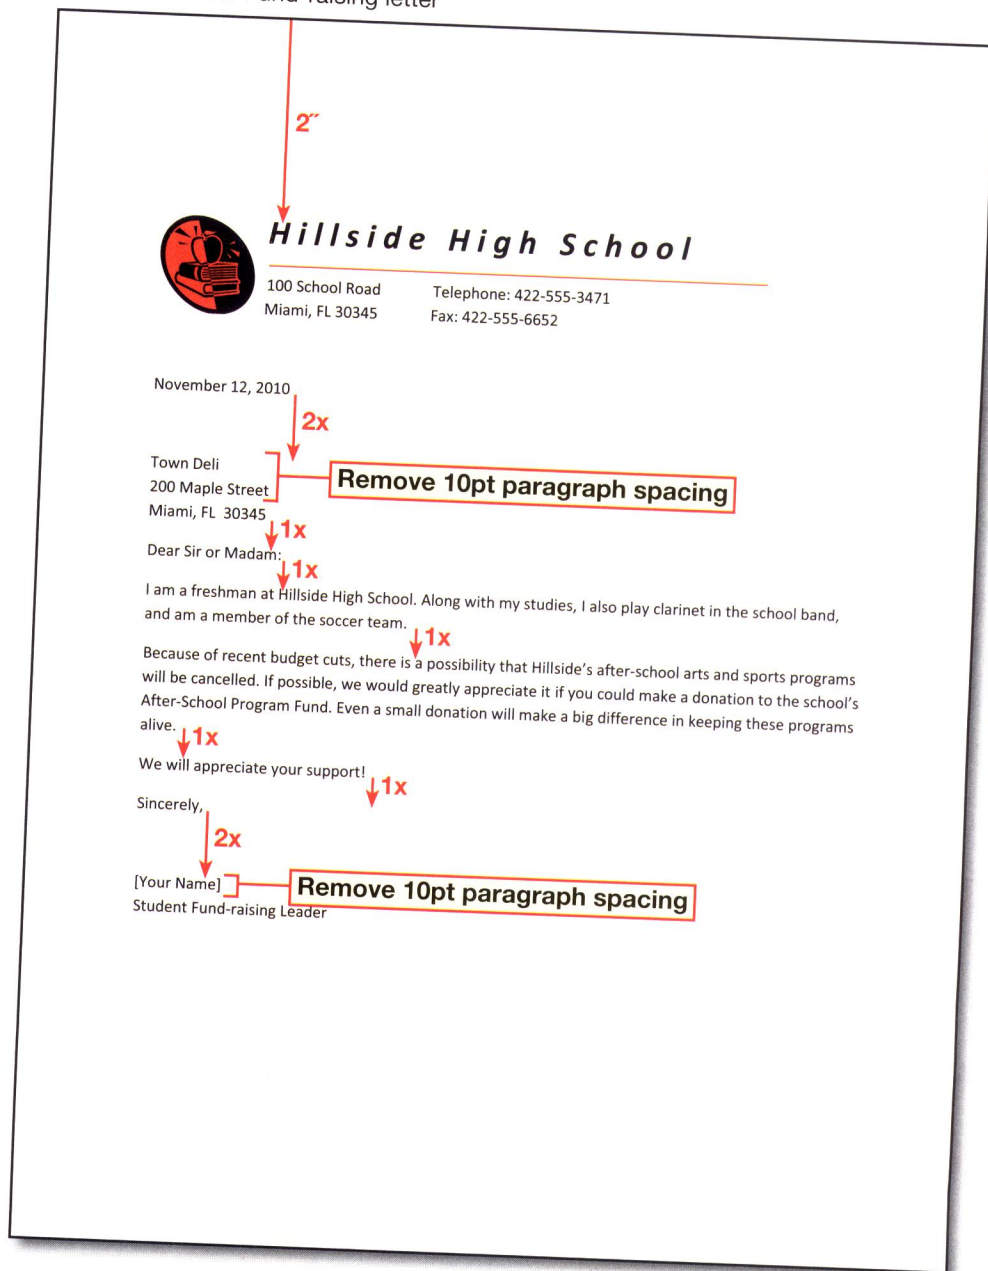 and-raising letter
2″
Hillside High School
100 School Road Telephone: 422-555-3471
Miami, FL 30345 Fax: 422-555-6652
November 12, 2010
2x
Town Deli
200 Maple Street
Miami, FL 30345
Remove 10pt paragraph spacing
1x
Dear Sir or Madam:
1x
I am a freshman at Hillside High School. Along with my studies, I also play clarinet in the school band,
and am a member of the soccer team.
1x
Because of recent budget cuts, there is a possibility that Hillside's after-school arts and sports programs
will be cancelled. If possible, we would greatly appreciate it if you could make a donation to the school's
After-School Program Fund. Even a small donation will make a big difference in keeping these programs
alive.
1x
We will appreciate your support!
1x
Sincerely,
2x
[Your Name]
Remove 10pt paragraph spacing
Student Fund-raising Leader